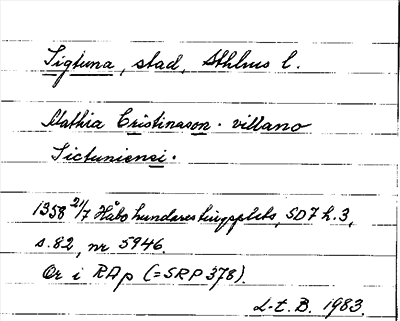 Sigtuna, stad, Sthlms l.
Mathia Cristinason. villano
Sictuniensi.
1358 21/7 Håbo hundares tingsplats, SD 7 h. 3,
s. 82, nr 5946.
Or i RAp (=SRP 378).
L-t. B. 1983.